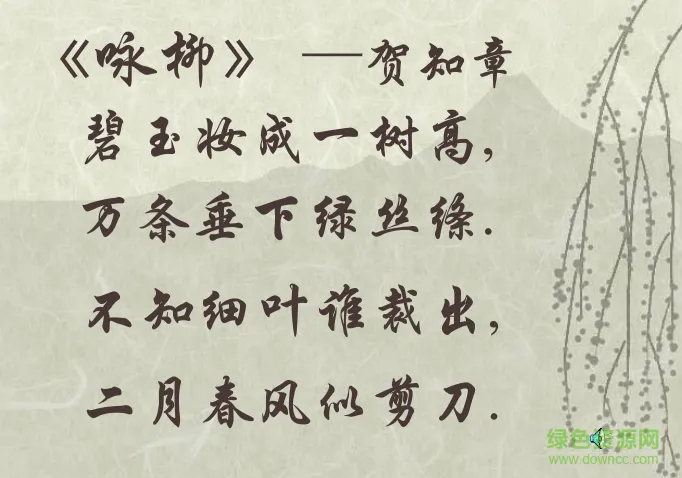 《咏柳》 ——贺知章
碧玉妆成一树高,
万条垂下绿丝绦.
不知细叶谁裁出,
二月春风似剪刀.
绿色资源网
www.downcc.com